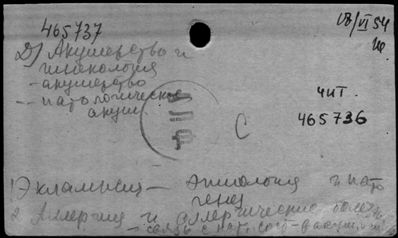 465737
18/VI 54
2) Акушерство и
гинекология
- акушерство
- патологическое
акуш
чит.
465736
С
1) Эклампсия — этиология и пато
генез
2) Аллергия и аллергические болезни
- связь с